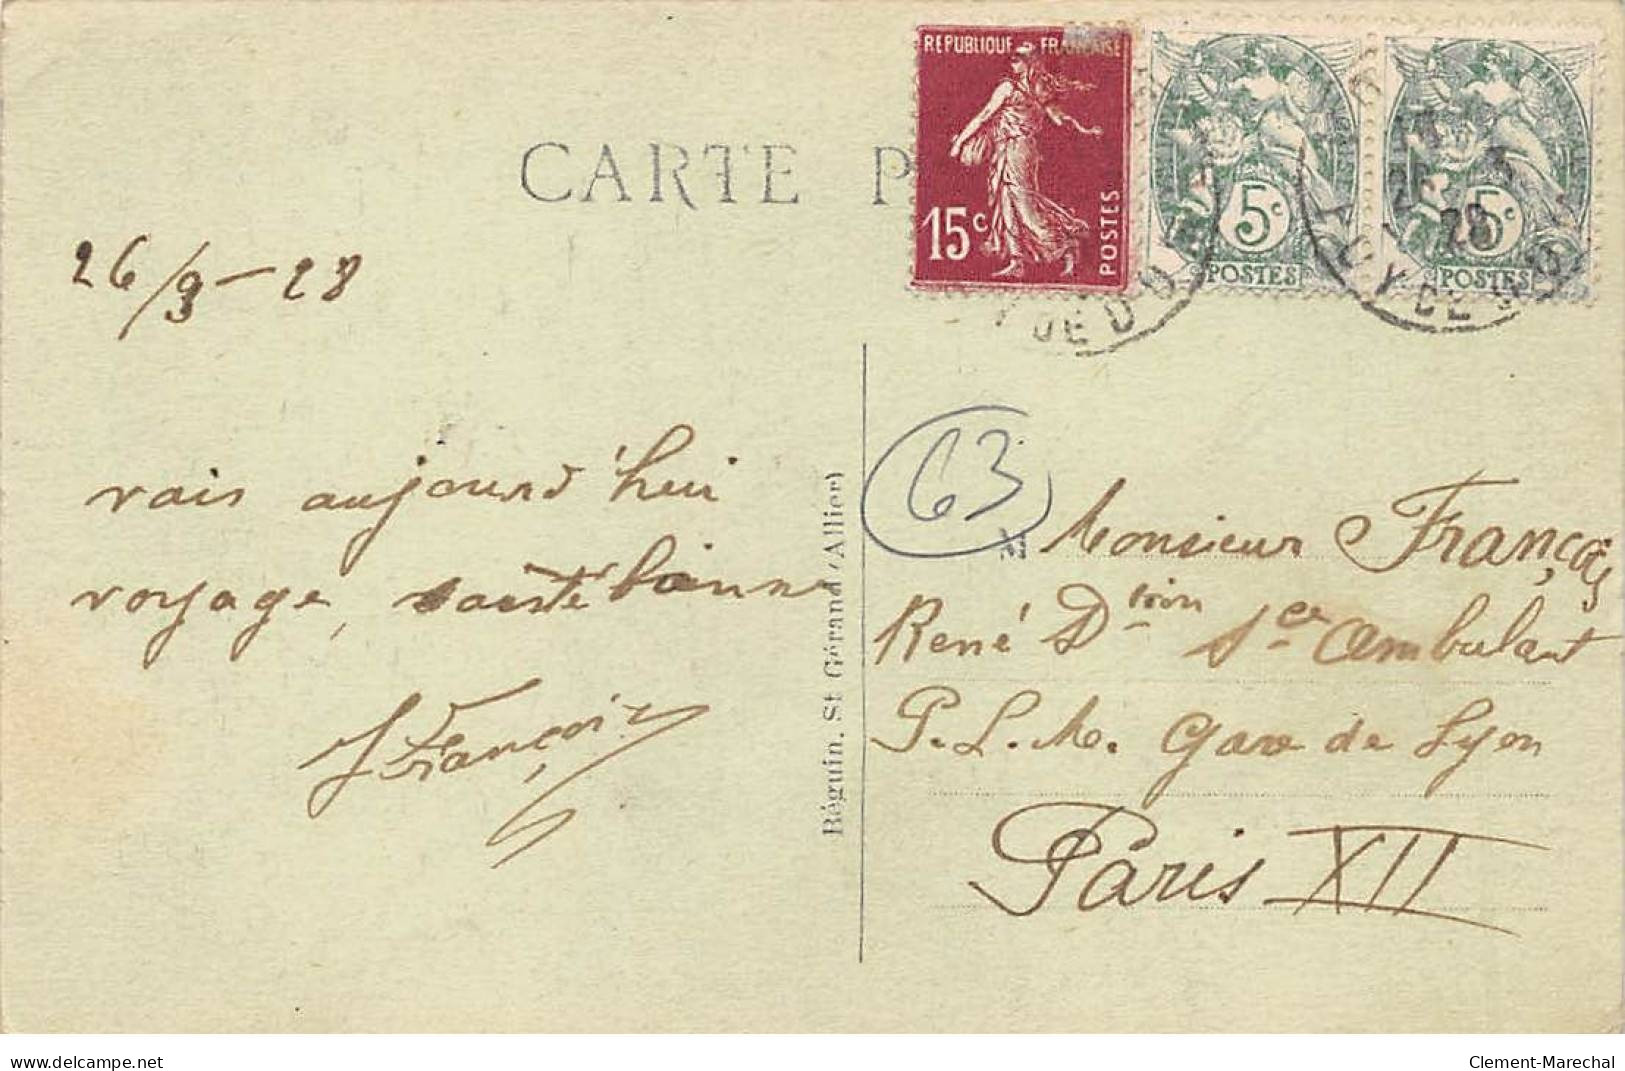 CARTE P
REPUBLIQUE FRANÇAISE
15c
POSTES
5c
POSTES
5c
POSTES
28
DE D
Y DE D
26/9-28
vais aujourd'hui
voyage, santé bonne
François
Réguin. St Gérand (Allier)
63
Monsieur François
René Dtion 1er Ambulant
P.L.M. Gare de Lyon
Paris XII
www.delcampe.net
Clement-Marechal